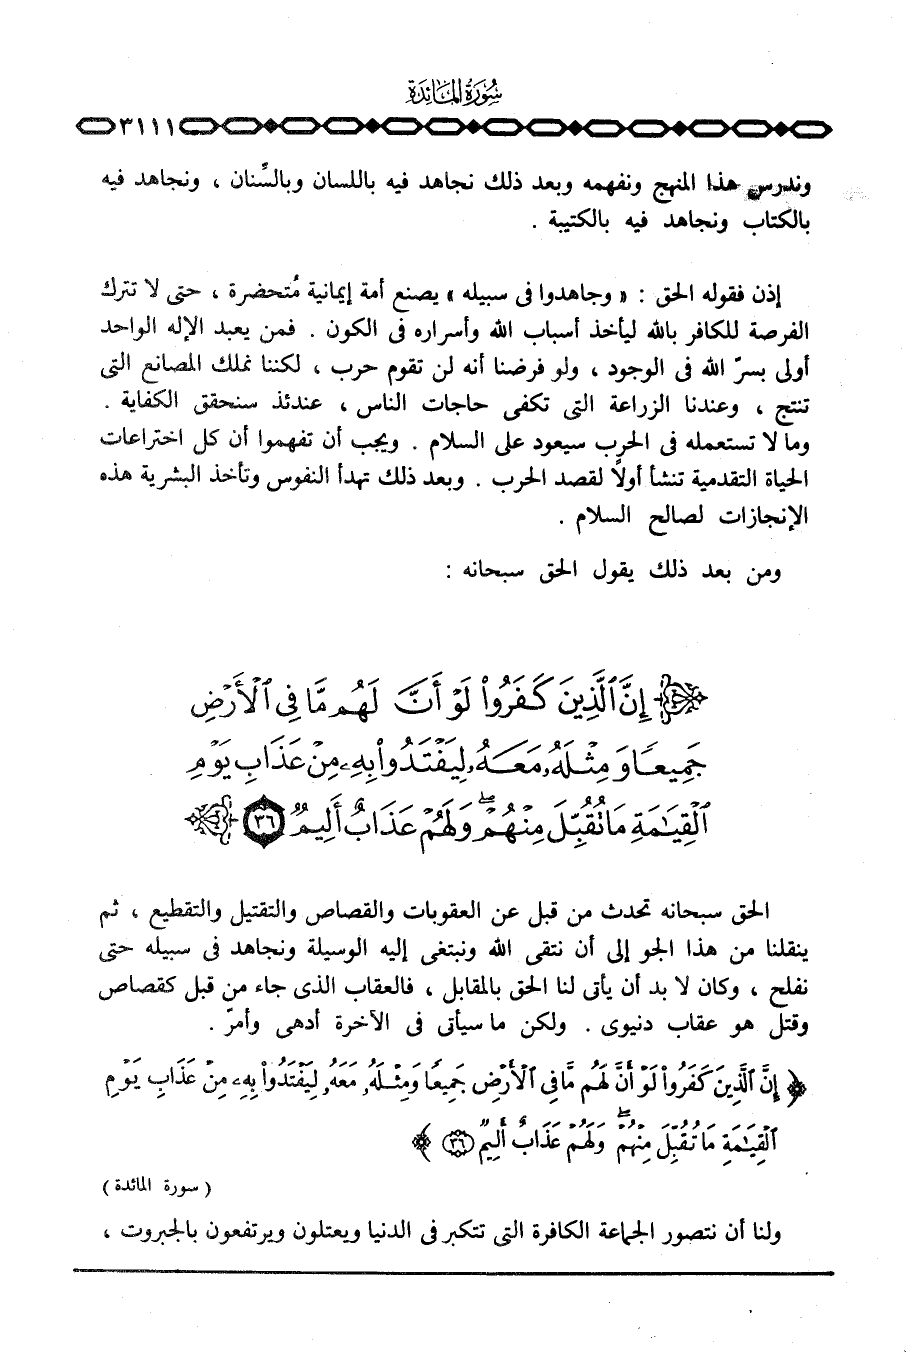 سورة المائدة
٣١١١
وندرس هذا المنهج ونفهمه وبعد ذلك نجاهد فيه باللسان وبالسِّنان ، ونجاهد فيه
بالكتاب ونجاهد فيه بالكتيبة .
إذن فقوله الحق : « وجاهدوا فى سبيله » يصنع أمة إيمانية مُتحضرة ، حتى لا تترك
الفرصة للكافر بالله ليأخذ أسباب الله وأسراره فى الكون . فمن يعبد الإله الواحد
أولى بسرّ الله فى الوجود ، ولو فرضنا أنه لن تقوم حرب ، لكننا نملك المصانع التى
تنتج ، وعندنا الزراعة التى تكفى حاجات الناس ، عندئذ سنحقق الكفاية .
وما لا تستعمله فى الحرب سيعود على السلام . ويجب أن تفهموا أن كل اختراعات
الحياة التقدمية تنشأ أولاً لقصد الحرب . وبعد ذلك تهدأ النفوس وتأخذ البشرية هذه
الإنجازات لصالح السلام .
ومن بعد ذلك يقول الحق سبحانه :
إِنَّ ٱلَّذِينَ كَفَرُوا۟ لَوْ أَنَّ لَهُم مَّا فِى ٱلْأَرْضِ
جَمِيعًا وَمِثْلَهُۥ مَعَهُۥ لِيَفْتَدُوا۟ بِهِۦ مِنْ عَذَابِ يَوْمِ
ٱلْقِيَـٰمَةِ مَا تُقُبِّلَ مِنْهُمْ ۖ وَلَهُمْ عَذَابٌ أَلِيمٌ ٣٦
الحق سبحانه تحدث من قبل عن العقوبات والقصاص والتقتيل والتقطيع ، ثم
ينقلنا من هذا الجو إلى أن نتقى الله ونبتغى إليه الوسيلة ونجاهد فى سبيله حتى
نفلح ، وكان لا بد أن يأتى لنا الحق بالمقابل ، فالعقاب الذى جاء من قبل كقصاص
وقتل هو عقاب دنيوى . ولكن ما سيأتى فى الآخرة أدهى وأمرّ .
﴿ إِنَّ ٱلَّذِينَ كَفَرُوا۟ لَوْ أَنَّ لَهُم مَّا فِى ٱلْأَرْضِ جَمِيعًا وَمِثْلَهُۥ مَعَهُۥ لِيَفْتَدُوا۟ بِهِۦ مِنْ عَذَابِ يَوْمِ
ٱلْقِيَـٰمَةِ مَا تُقُبِّلَ مِنْهُمْ ۖ وَلَهُمْ عَذَابٌ أَلِيمٌ ٣٦ ﴾
( سورة المائدة )
ولنا أن نتصور الجماعة الكافرة التى تتكبر فى الدنيا ويعتلون ويرتفعون بالجبروت ،